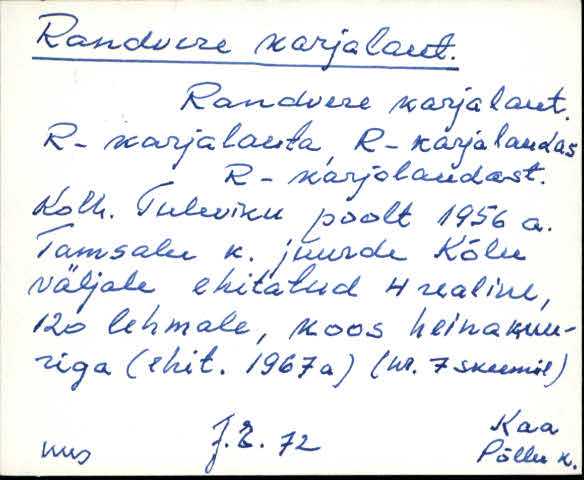 Randvere karjalaut.
Randvere karjalaut.
R- karjalauta, R- karjalaudas
R- karjalaudast.
Kolh. Tuleviku poolt 1956 a.
Tamsalu k. juurde Kõlu
väljale ehitatud 4 realine,
120 lehmale, koos heinakuu-
riga (ehit. 1967a) (nr. 7 skeemil)
J.E. 72
Kaa
Põllu k.